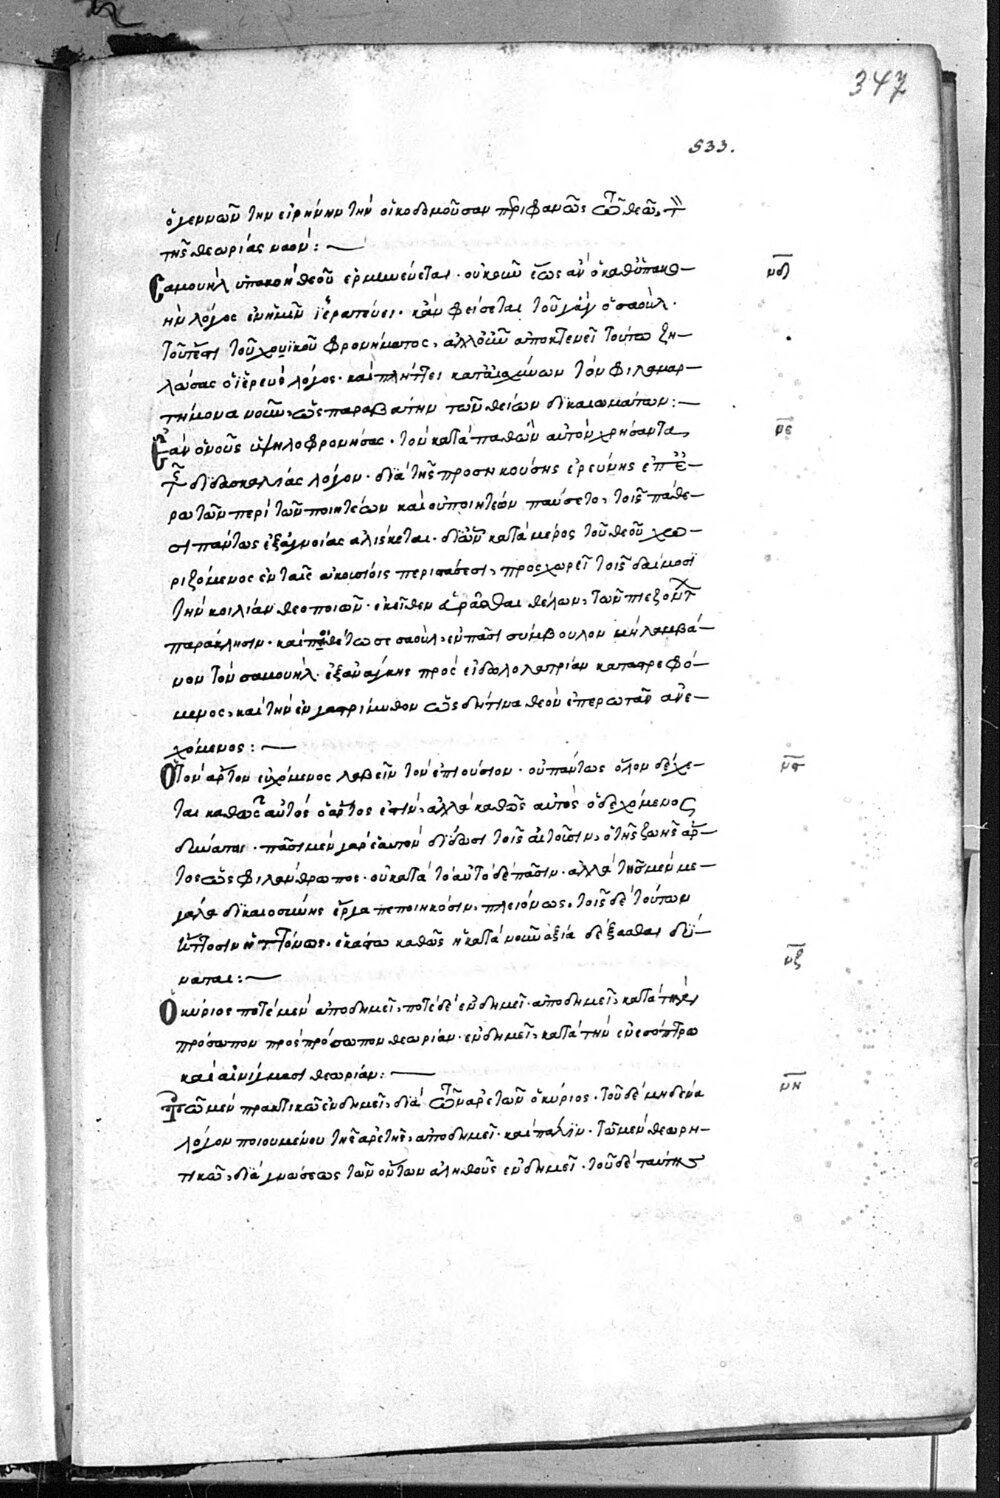 347
533.
ὁ γεννῶν τὴν εἰρήνην τὴν οἰκοδομοῦσαν περιφανῶς τῶ θεῶ, τὸν
τῆς θεωρίας ναόν :
Σαμουὴλ ὑπακοὴ θεοῦ ἑρμηνεύεται · οὐκοῦν ἕως ἂν ὁ καθ' ὑπακο-
ὴν λόγος ἐν ἡμῖν ἱερατεύει · κἂν φείσεται τοῦ ἀγὰγ ὁ σαοὺλ ·
τοῦτέστι τοῦ χοϊκοῦ φρονήματος, ἀλλ' οὖν ἀποκτενεῖ τοῦτω ζη-
λώσας ὁ ἱερεὺς λόγος · καὶ πλήττει καταισχύνων τὸν φιλαμαρ-
τήμονα νοῦν, ὡς παραβάτην τῶν θείων δικαιωμάτων :
νδ
Ἐὰν ὁ νοῦς ὑψηλοφρονήσας · τὸν κατὰ παθῶν αὐτὸν χρήσαντα,
νε
τῆς διδασκαλίας λόγον · διὰ τῆς προσηκούσης ἐρεύνης ἐπε-
ρωτῶν περὶ τῶν ποιητέων καὶ οὐ ποιητέον παύσετο, τοῖς πάθε-
σι πάντως ἐξ ἀγνοίας ἁλίσκεται · δι' ὧν κατὰ μέρος τοῦ θεοῦ χω-
ριζόμενος ἐν ταῖς ἀκουσίοις περιστάσεσι, προσχωρεῖ τοῖς δαίμοσι
τὴν κοιλίαν θεοποιῶν · ἐκεῖθεν εὑρᾶσθαι θέλων, τῶν πιεζόντων
παράκλησιν · καὶ πειθέτω σε σαοὺλ, ἐν πᾶσι σύμβουλον μὴ λαμβά-
νων τὸν σαμουὴλ · ἐξ ἀνάγκης πρὸς εἰδωλολατρίαν καταστρεφό-
μενος, καὶ τὴν ἐγγαστρίμυθον ὡς δή τινα θεὸν ἐπερωτᾶν ἀνε-
χόμενος :
Ὁ τὸν ἄρτον εὐχόμενος λαβεῖν τὸν ἐπιούσιον · οὐ πάντως ὅλον δέχε-
νστ
ται καθὼς αὐτὸς ὁ ἄρτος ἐστὶν, ἀλλὰ καθὼς αὐτὸς ὁ δεχόμενος
δύναται · πᾶσι μὲν γὰρ ἑαυτὸν δίδωσι τοῖς αἰτοῦσιν, ὁ τῆς ζωῆς ἄρ-
τος ὡς φιλάνθρωπος · οὐ κατὰ τὸ αὐτὸ δὲ πᾶσιν · ἀλλὰ τοῖς μὲν με-
γάλα δικαιοσύνης ἔργα πεποιηκόσιν, πλειόνως, τοῖς δὲ τούτων
ἥττοσιν ἡττόνως · ἑκάστω καθὼς ἡ κατὰ νοῦν ἀξία δέξασθαι δύ-
ναται :
νζ
Ὁ κύριος ποτὲ μὲν ἀποδημεῖ, ποτὲ δὲ ἐνδημεῖ · ἀποδημεῖ, κατὰ τὴν
πρόσωπον πρὸς πρόσωπον θεωρίαν · ἐνδημεῖ, κατὰ τὴν ἐν ἐσόπτρω
καὶ αἰνίγμασι θεωρίαν :
Τῶ μὲν πρακτικῶ ἐνδημεῖ, διὰ τῶν ἀρετῶν ὁ κύριος · τοῦ δὲ μηδένα
νη
λόγον ποιουμένου τῆς ἀρετῆς, ἀποδημεῖ · καὶ πάλιν · τῶ μὲν θεωρη-
τικῶ, διὰ γνώσεως τῶν ὄντων ἀληθοῦς ἐνδημεῖ · τοῦ δὲ ταύτης